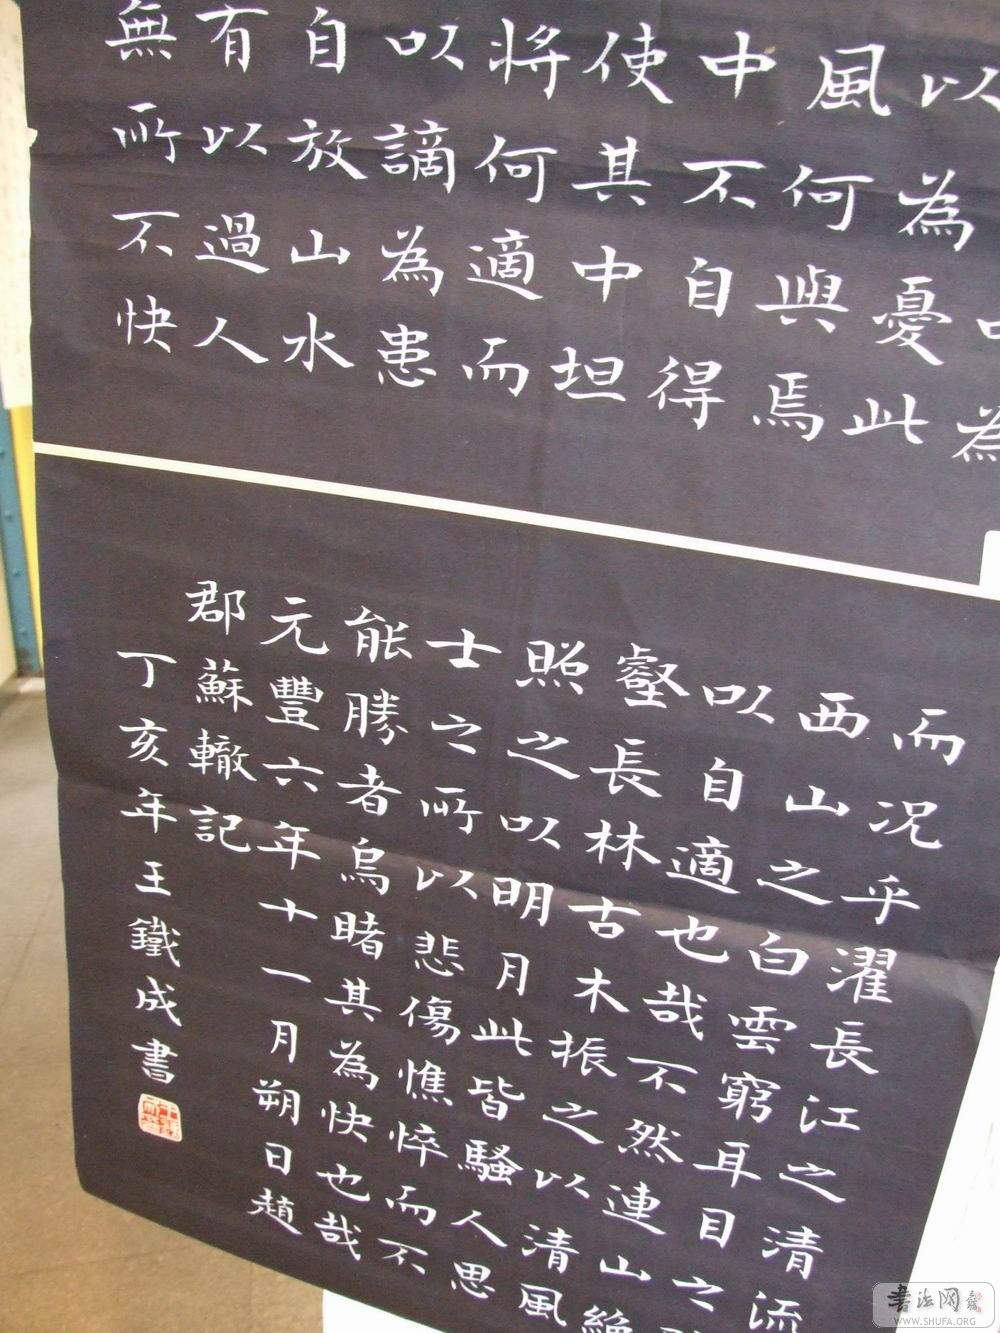 為
以為憂此
風何與焉
中不自得
使其中坦
將何適而
以謫為患
自放山水
有以過人
無所不快
而況乎濯長江之清流
西山之白雲窮耳目之
以自適也哉不然連山絶
壑長林古木振之以清風
照之以明月此皆騷人思
士之所以悲傷憔悴而不
能勝者烏睹其為快也哉
元豐六年十一月朔日趙
郡蘇轍記
丁亥年王鐵成書
書法网
WWW.SHUFA.ORG